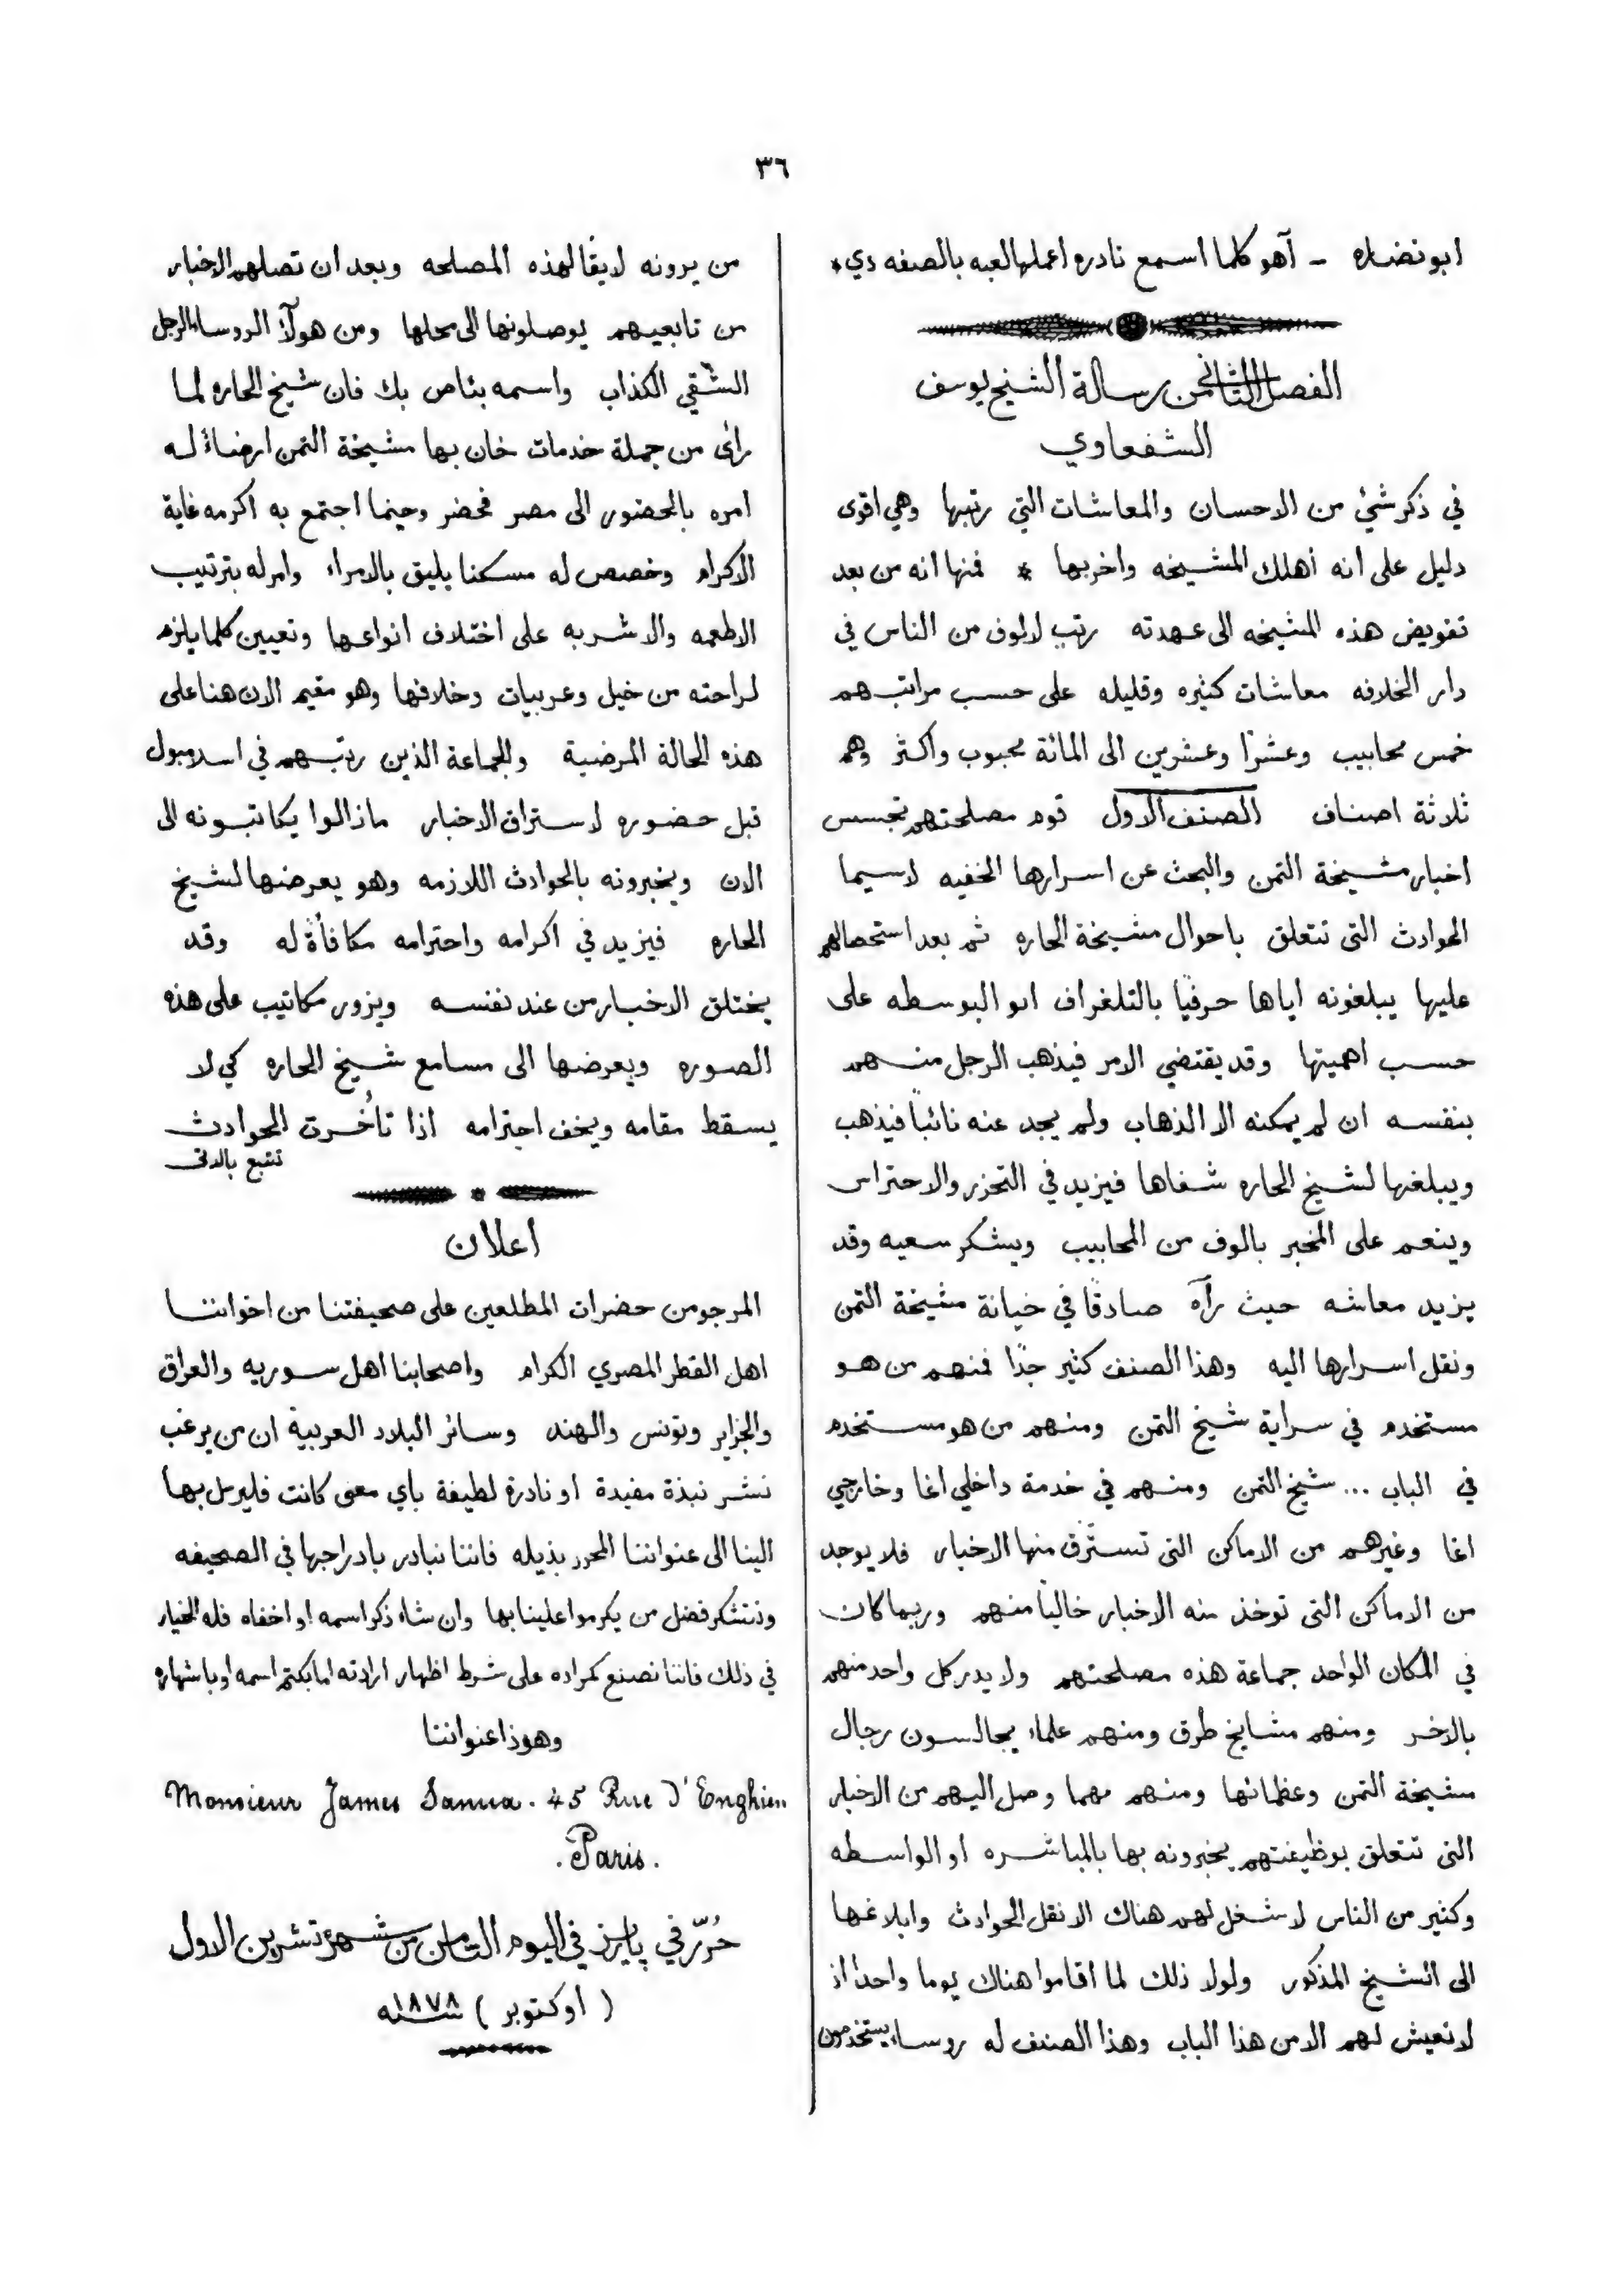 ٣٦
ابو نضاره - آهو كلما اسمع نادره اعملها لعبه بالصفه دي *
الفصل الثاني من رسالة الشيخ يوسف
الشفعاوي
في ذكر شئ من الاحسان والمعاشات التي رتبها وهي اقوى
دليل على انه اهلك المشيخه واخربها * فمنها انه من بعد
تفويض هذه المشيخه الى عهدته رتب لالوف من الناس في
دار الخلافه معاشات كثيره وقليله على حسب مراتبهم
خمس محابيب وعشرا وعشرين الى المائة محبوب واكثر وهم
ثلاثة اصناف الصنف الاول قوم مصلحتهم تجسس
اخبار مشيخة التمن والبحث عن اسرارها الخفيه لاسيما
الحوادث التى تتعلق باحوال مشيخة الحاره ثم بعد استحصالهم
عليها يبلغونه اياها حرفيا بالتلغراف او البوسطه على
حسب اهميتها وقد يقتضي الامر فيذهب الرجل منهم
بنفسه ان لم يمكنه الا الذهاب ولم يجد عنه نائبا فيذهب
ويبلغها لشيخ الحاره شفاها فيزيد في التحزر والاحتراس
وينعم على المخبر بالوف من المحابيب ويشكر سعيه وقد
يزيد معاشه حيث رآه صادقا في خيانة مشيخة التمن
ونقل اسرارها اليه وهذا الصنف كثير جدًا فمنهم من هو
مستخدم في سراية شيخ التمن ومنهم من هو مستخدم
في الباب ... شيخ التمن ومنهم في خدمة داخلي اغا وخارجي
اغا وغيرهم من الاماكن التى تسترق منها الاخبار فلا يوجد
من الاماكن التى توخذ منه الاخبار خاليا منهم وربما كان
في المكان الواحد جماعة هذه مصلحتهم ولا يدر كل واحد منهم
بالاخر ومنهم مشايخ طرق ومنهم علماء يجالسون رجال
مشيخة التمن وعظمائها ومنهم مهما وصل اليهم من الاخبار
التى تتعلق بوظيفتهم يخبرونه بها بالمباشره او الواسطه
وكثير من الناس لا شغل لهم هناك الا نقل الحوادث وابلاغها
الى الشيخ المذكور ولولا ذلك لما اقاموا هناك يوما واحدا اذ
لا تعيش لهم الا من هذا الباب وهذا الصنف له روساء يستخدمون
من يرونه لايقا لهذه المصلحه وبعد ان تصلهم الاخبار
من تابعيهم يوصلونها الى محلها ومن هولآ الروساء الرجل
الشقي الكذاب واسمه بئاص بك فان شيخ الحاره لما
رأى من جملة خدمات خان بها مشيخة التمن ارضاءً له
امره بالحضور الى مصر فحضر وحينما اجتمع به اكرمه غاية
الاكرام وخصص له مسكنا يليق بالامراء وامر له بترتيب
الاطعمه والاشربه على اختلاف انواعها وتعيين كلما يلزم
لراحته من خيل وعربيات وخلافها وهو مقيم الان هنا على
هذه الحالة المرضية والجماعة الذين رتبهم في اسلامبول
قبل حضوره لاستراق الاخبار مازالوا يكاتبونه الى
الان ويخبرونه بالحوادث اللازمه وهو يعرضها لشيخ
الحاره فيزيد في اكرامه واحترامه مكافأة له وقد
يختلق الاخبار من عند نفسه ويزور مكاتيب على هذه
الصوره ويعرضها الى مسامع شيخ الحاره كي لا
يسقط مقامه ويخف احترامه اذا تأخرت الحوادث
تتبع بالاتى
اعلان
المرجو من حضرات المطلعين على صحيفتنا من اخواننا
اهل القطر المصري الكرام واصحابنا اهل سوريه والعراق
والجزاير وتونس والهند وسائر البلاد العربية ان من يرغب
نشر نبذة مفيدة او نادرة لطيفة باي معنى كانت فليرسل بها
الينا الى عنواننا المحرر بذيله فاننا نبادر بادراجها في الصحيفه
ونتشكر فضل من يكرموا علينا بها وان شاء ذكر اسمه او اخفاه فله الخيار
في ذلك فاننا نصنع كمراده على شرط اظهار ارادته اما بكتم اسمه او باشهاره
وهوذا عنواننا
Monsieur James Sanua. 45 Rue d'Enghien
. Paris .
حُرّر في باريز في اليوم الثامن من شهر تشرين الاول
( اوكتوبر ) سنه ١٨٧٨